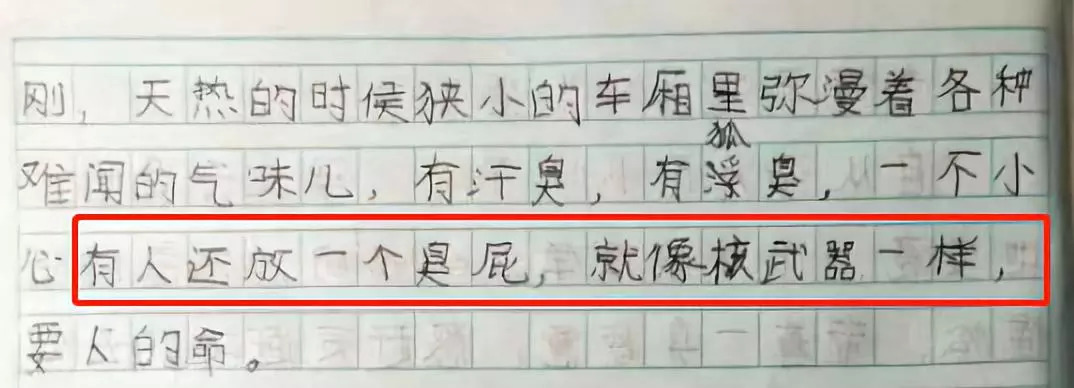 刚，天热的时候狭小的车厢里弥漫着各种
狐
难闻的气味儿，有汗臭，有浮臭，一不小
心有人还放一个臭屁，就像核武器一样，
要人的命。